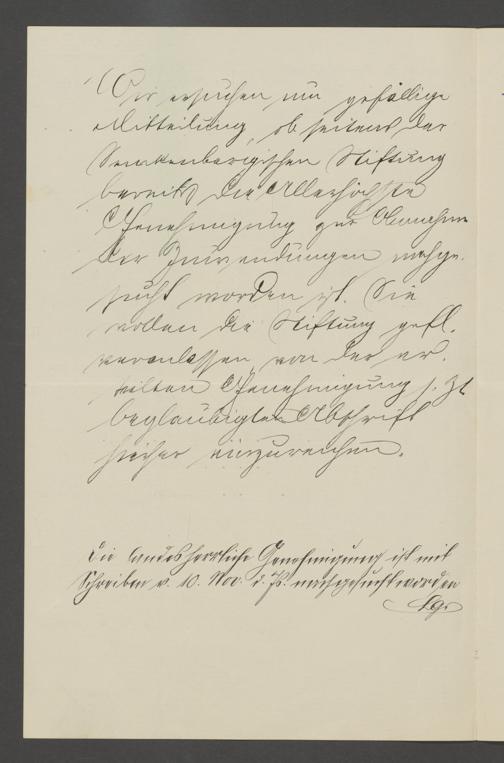 Wir ersuchen um gefällige
Mitteilung, ob seitens der
Senckenbergischen Stiftung
bereits die Allerhöchste
Genehmigung zur Annahme
der Zuwendungen nachge-
sucht worden ist. Sie
wollen die Stiftung gefl.
veranlassen, von der er-
teilten Genehmigung s. Zt
beglaubigte Abschrift
hierher einzureichen.
Die landesherrliche Genehmigung ist mit
Schreiben v. 10. Nov. d. Js. nachgesucht worden